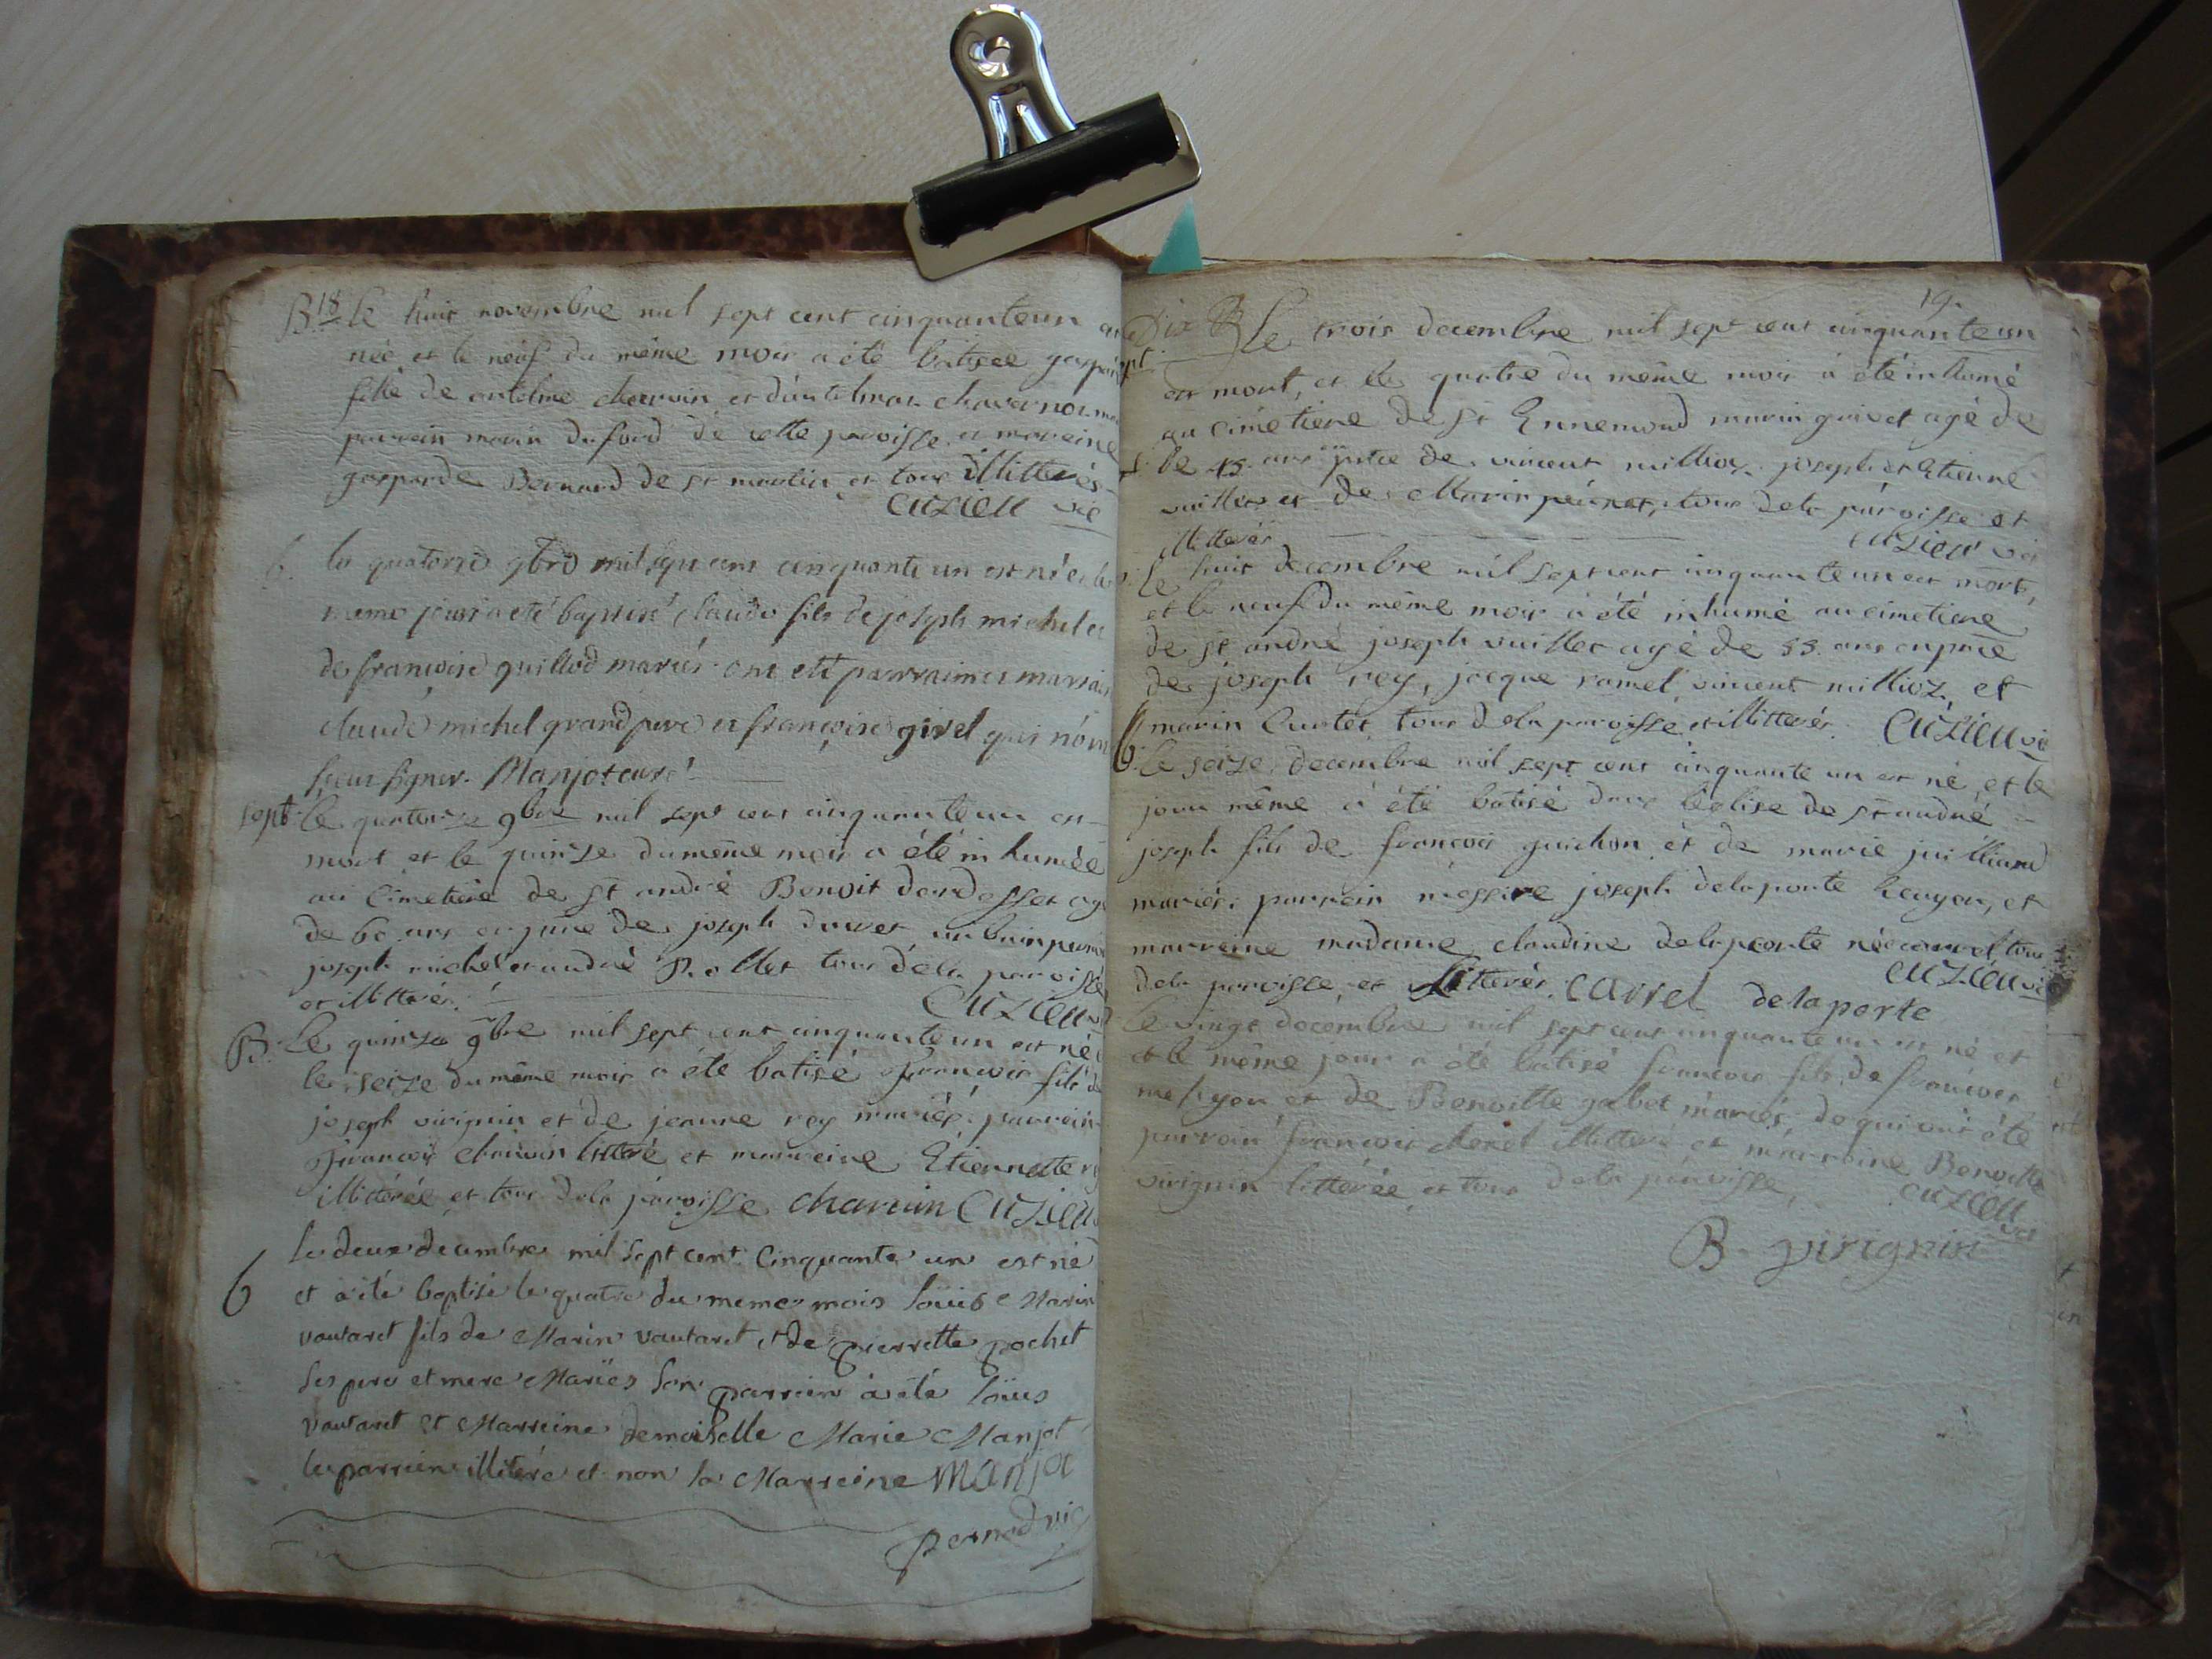 B. 18. le huit novembre mil sept cent cinquante un
née et le neuf du même mois a été batisee
fille de antelme charvin et
parrein marin dufourd de cette paroisse et marreine
gasparde Bernard de st martin et tous illitterés
cuzieu vic
b. le quatorze 9bre mil sept cent cinquante un est né et le
meme jour a eté baptisé claude fils de joseph michel et
de françoise guillod mariés ont eté parrain et marrain
claude michel grand pere et françoise givel qui n'ont
sceus signer. Manjot curé
sept. le quatorze 9bre mil sept cent cinquante un est
mort et le quinze du même mois a été inhumée
au cimetiere de st andré Benoit agé
de 60 ans en pnce de joseph
joseph michel et andré Rollet tous de la paroisse
et illitterés.
cuzieu
B. Le quinze 9bre mil sept cent cinquante un est né
le seize du même mois a été batisé françois fils de
joseph virignin et de jeanne rey mariés, parrein
françois charvin litteré et marreine Etiennette
illitérée et tous de la paroisse charvin cuzieu
6 le deux decembre mil sept cent cinquante un est né
et a été baptisé le quatre du meme mois loüis Marin
vautaret fils de Marin vautaret et de pierrette pochet
ses pere et mere Mariés son parrein a été loüis
vautaret et Marreine demoiselle Marie Manjot
le parrein illitéré et non la Marreine Manjot
pernod vic
19.
Dix B le trois decembre mil sept cent cinquante un
est mort, et le quatre du même mois a été inhumé
au cimetiere de st Ennemond marin guivet agé de
45 ans en pnce de vincent millioz joseph et Etienne
vuillet et de Marin peignet, tous de la paroisse et
illitterés
cuzieu vic
le huit decembre mil sept cent cinquante un est mort,
et le neuf du même mois a été inhumé au cimetiere
de st andré joseph vuillet agé de 55 ans en pnce
de joseph rey, jacque ramel vincent millioz et
marin tous de la paroisse et illitterés cuzieu vic
B. le seize decembre mil sept cent cinquante un est né, et le
jour même a été batisé dans l'eglise de st andré
joseph fils de françois guichon et de marie juilliand
mariés. parrein messire joseph delaporte Ecuyer, et
marreine madame claudine delaporte née carrel tous
de la paroisse et litterés. carrel delaporte cuzieu vic
le vingt decembre mil sept cent cinquante un est né et
et le même jour a été batisé françois fils de françois
et de Benoitte gabet mariés, de qui ont été
parrein françois illitteré et marreine Benoitte
virignin litterée et tous de la paroisse,
cuzieu vic
B. virignin